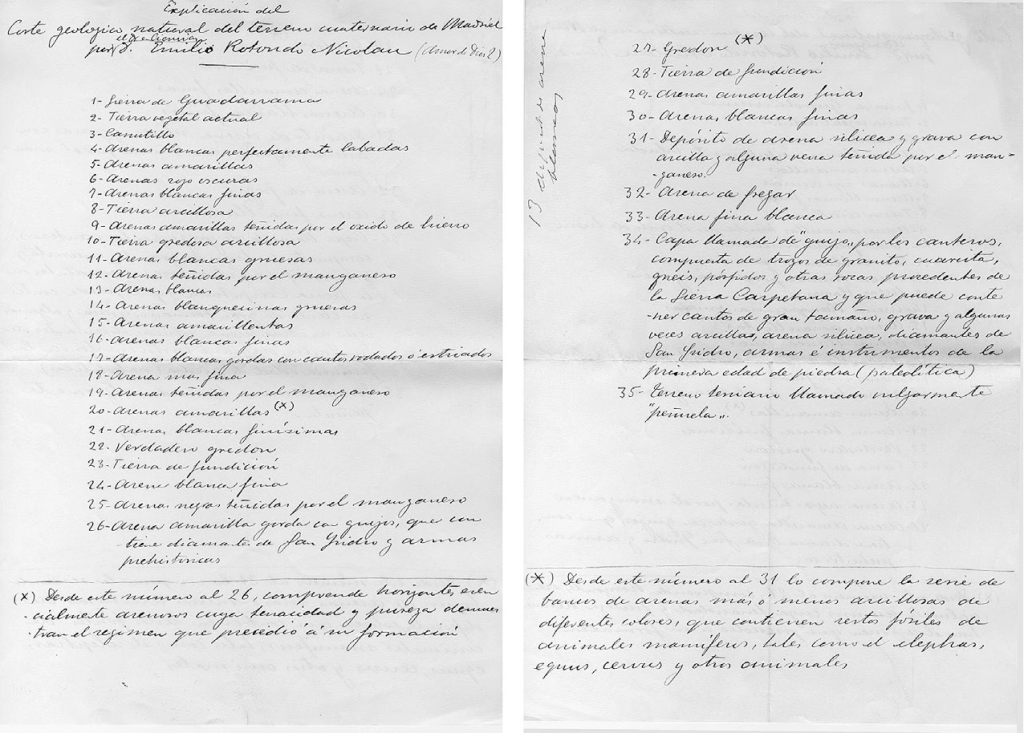 Explicación del
Corte geológico natural del terreno cuaternario de Madrid
por D. Emilio Rotondo Nicolau (Amor de Dios 2)
1- Sierra de Guadarrama
2- Tierra vegetal actual
3- Canutillo
4- Arenas blancas perfectamente labadas
5- Arenas amarillas
6- Arenas rojo oscuras
7- Arenas blancas finas
8- Tierra arcillosa
9- Arenas amarillas teñidas por el oxido de hierro
10- Tierra gredosa arcillosa
11- Arenas blancas gruesas
12- Arenas teñidas por el manganeso
13- Arenas blancas
14- Arenas blanquecinas gruesas
15- Arenas amarillentas
16- Arenas blancas finas
17- Arenas blancas gordas con cantos rodados ó estriados
18- Arena mas fina
19- Arenas teñidas por el manganeso
20- Arenas amarillas (x)
21- Arenas blancas finísimas
22- Verdadero gredon
23- Tierra de fundición
24- Arena blanca fina
25- Arenas negras teñidas por el manganeso
26- Arena amarilla gorda con guijos, que con
tiene diamantes de San Isidro y armas
prehistóricas
(x) Desde este número al 26, comprende horizontes esen
cialmente arenosos cuya tenacidad y pureza demues
tran el regimen que presedió á su formación
13 deposito de arena
blancas
27- Gredon (*)
28- Tierra de fundición
29- Arenas amarillas finas
30- Arenas blancas finas
31- Depósito de arena silicea y grava con
arcilla y alguna vena teñida por el man-
ganeso.
32- Arena de fregar
33- Arena fina blanca
34- Capa llamada de "guijo" por los canteros,
compuesta de trozos de granito, cuarcita,
gneis, pórfidos y otras rocas procedentes de
la Sierra Carpetana y que puede conte
ner cantos de gran tamaño, grava y algunas
veces arcillas, arena silicea, diamantes de
San Isidro, armas é instrumentos de la
primera edad de piedra (paleolítica)
35- terreno terciario llamado vulgarmente
"peñuela".
(*) Desde este número al 31 lo compone la serie de
bancos de arenas más ó menos arcillosas de
diferentes colores, que contienen restos fósiles de
animales mamíferos, tales como el elephas,
equus, cervus y otros animales